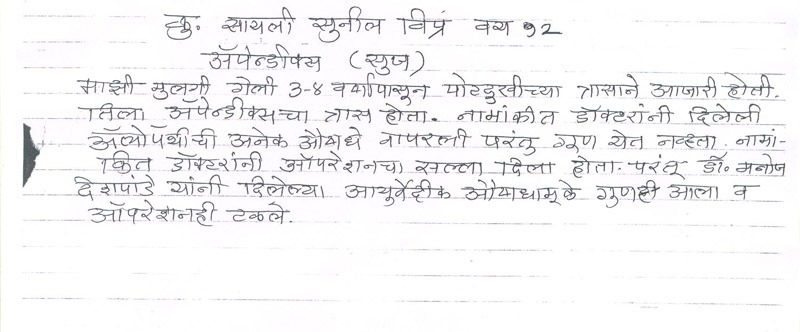 कु. सायली सुनील विप्रं वय १२
ॲपेन्डीक्स (सुज)
माझी मुलगी गेली ३-४ वर्षापासुन पोटदुखीच्या त्रासाने आजारी होती.
तिला ॲपेन्डीक्सचा त्रास होता. नामांकीत डॉक्टरांनी दिलेली
ॲलोपॅथीची अनेक औषधे वापरली परंतु गुण येत नव्हता. नामां-
कित डॉक्टरांनी ऑपरेशनचा सल्ला दिला होता. परंतु डॉ. मनोज
देशपांडे यांनी दिलेल्या आयुर्वेदीक औषधामुळे गुणही आला व
ऑपरेशनही टळले.